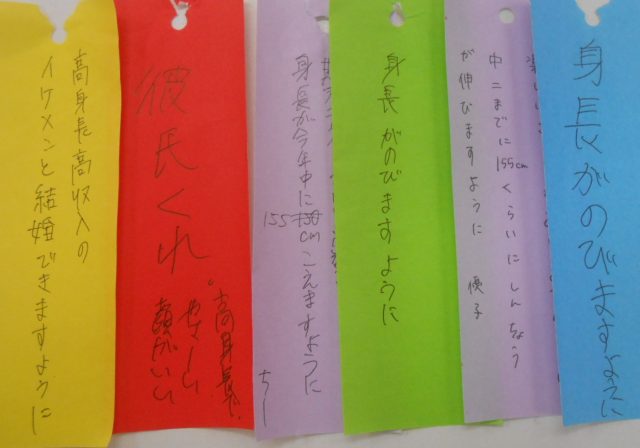 高身長高収入の
イケメンと結婚できますように
彼氏くれ。
高身長で、
やさしい
顔がいい
身長が今年中に
155cmこえますように
ちー
身長がのびますように
中二までに155cmくらいにしんちょう
が伸びますように
優子
身長がのびますように